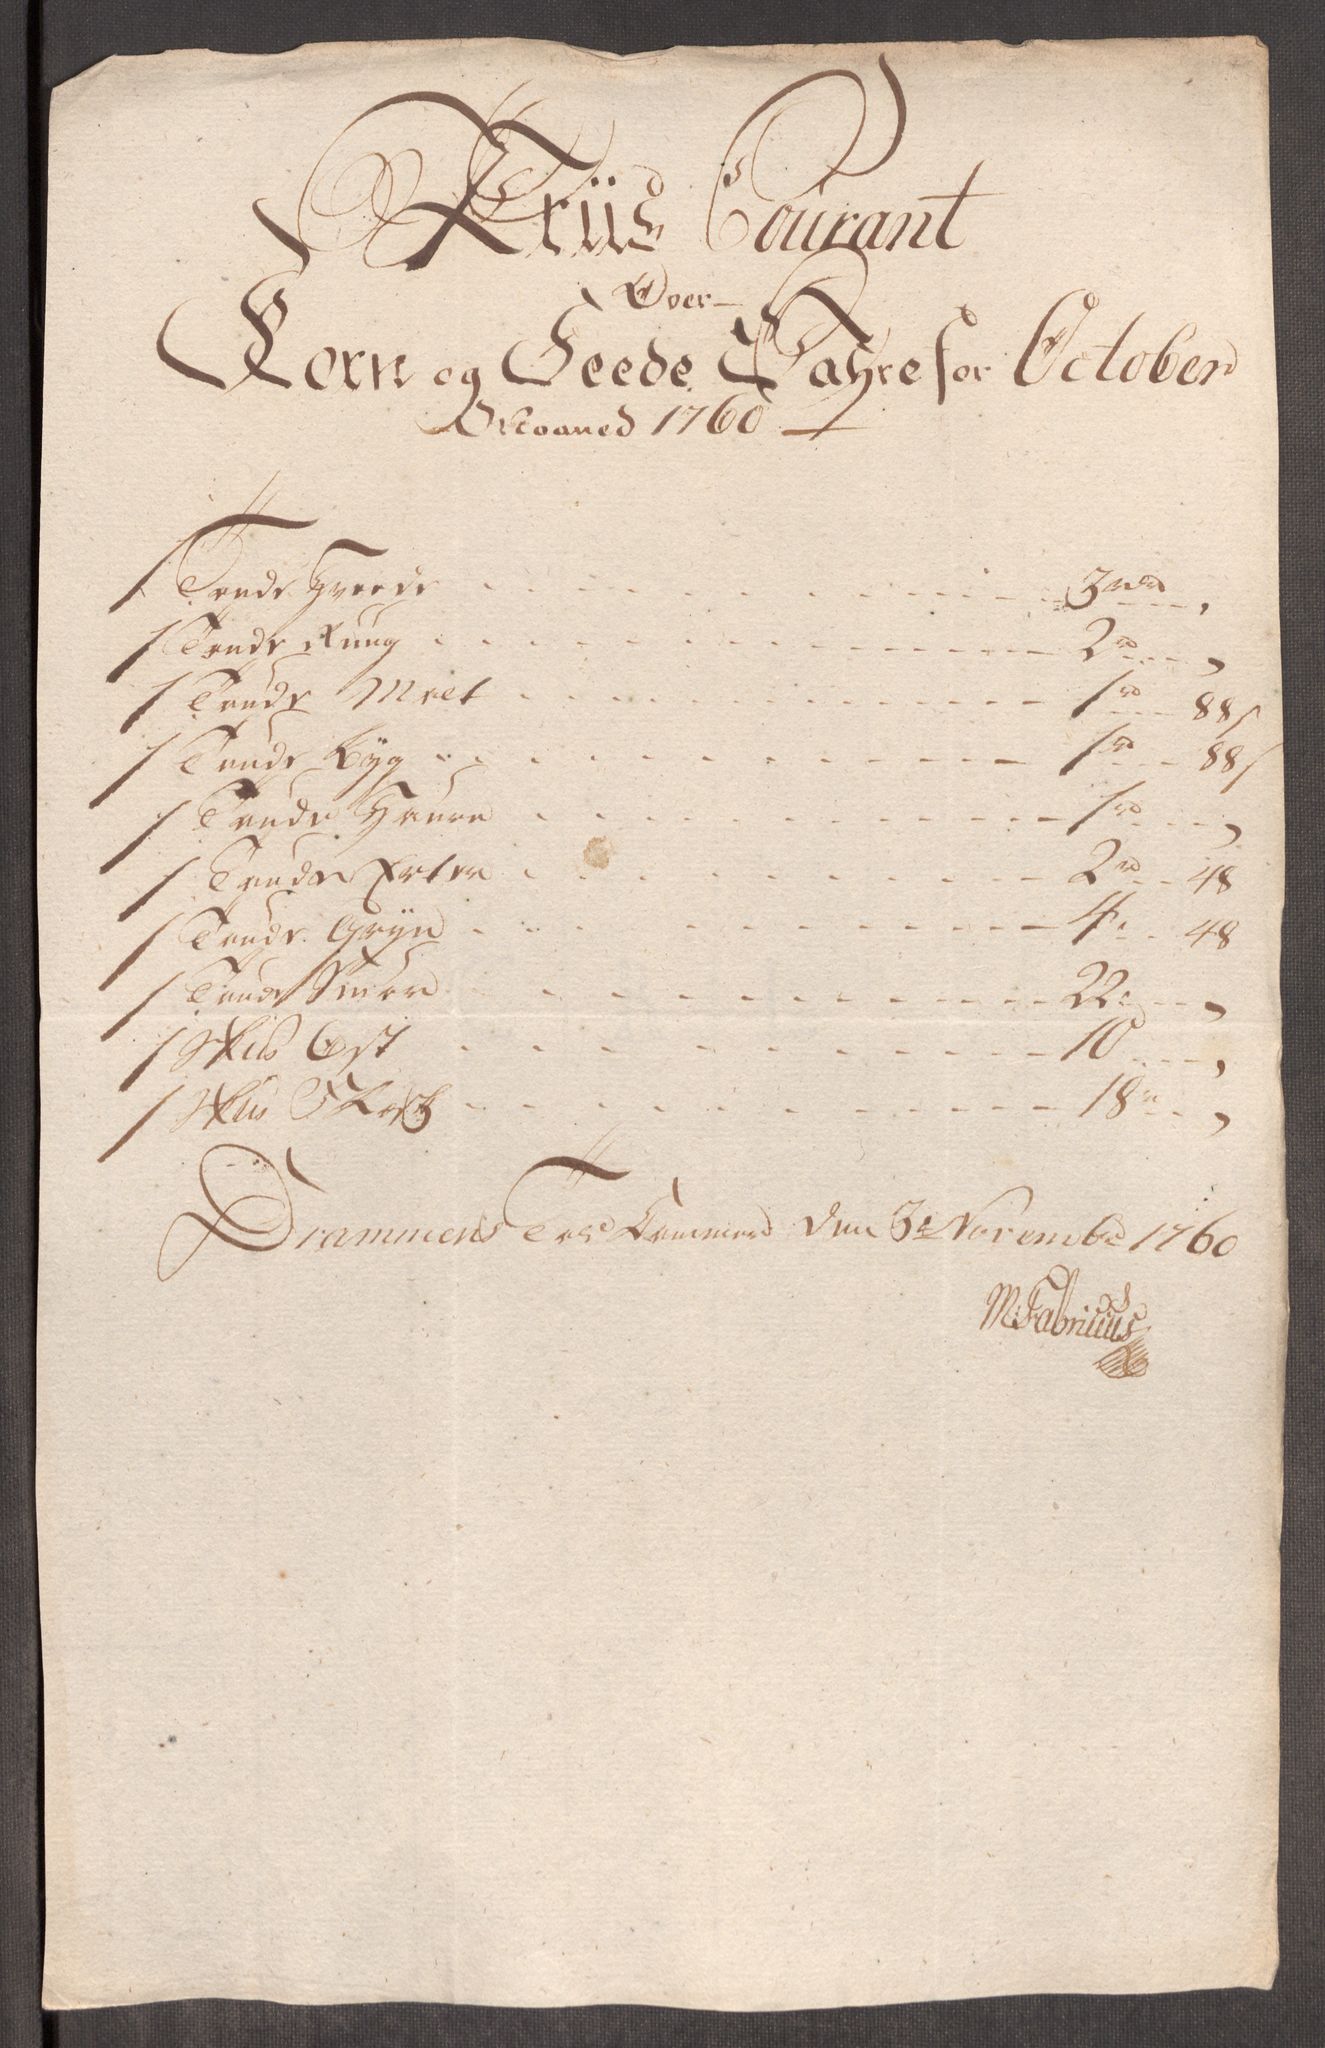 Priis Courant
Over
Korn og Feede Wahre for October
Maaned 1760
1 Tønde Hvede 3 rd ,
1 Tønde Rung 2 rd ,
1 Tønde Malt 1 rd 88 s
1 Tønde Byg 1 rd 88 s
1 Tønde Haure 1 rd ,
1 Tønde Erter 2 rd 48
1 Tønde Gryn 4 48
1 Tønde Smør 22 ,
1 Skp Ost 10 ,
1 Skp Flesk 18 ,
Drammens Told Kammer den 3t Novembr 1760
M: Fabricius